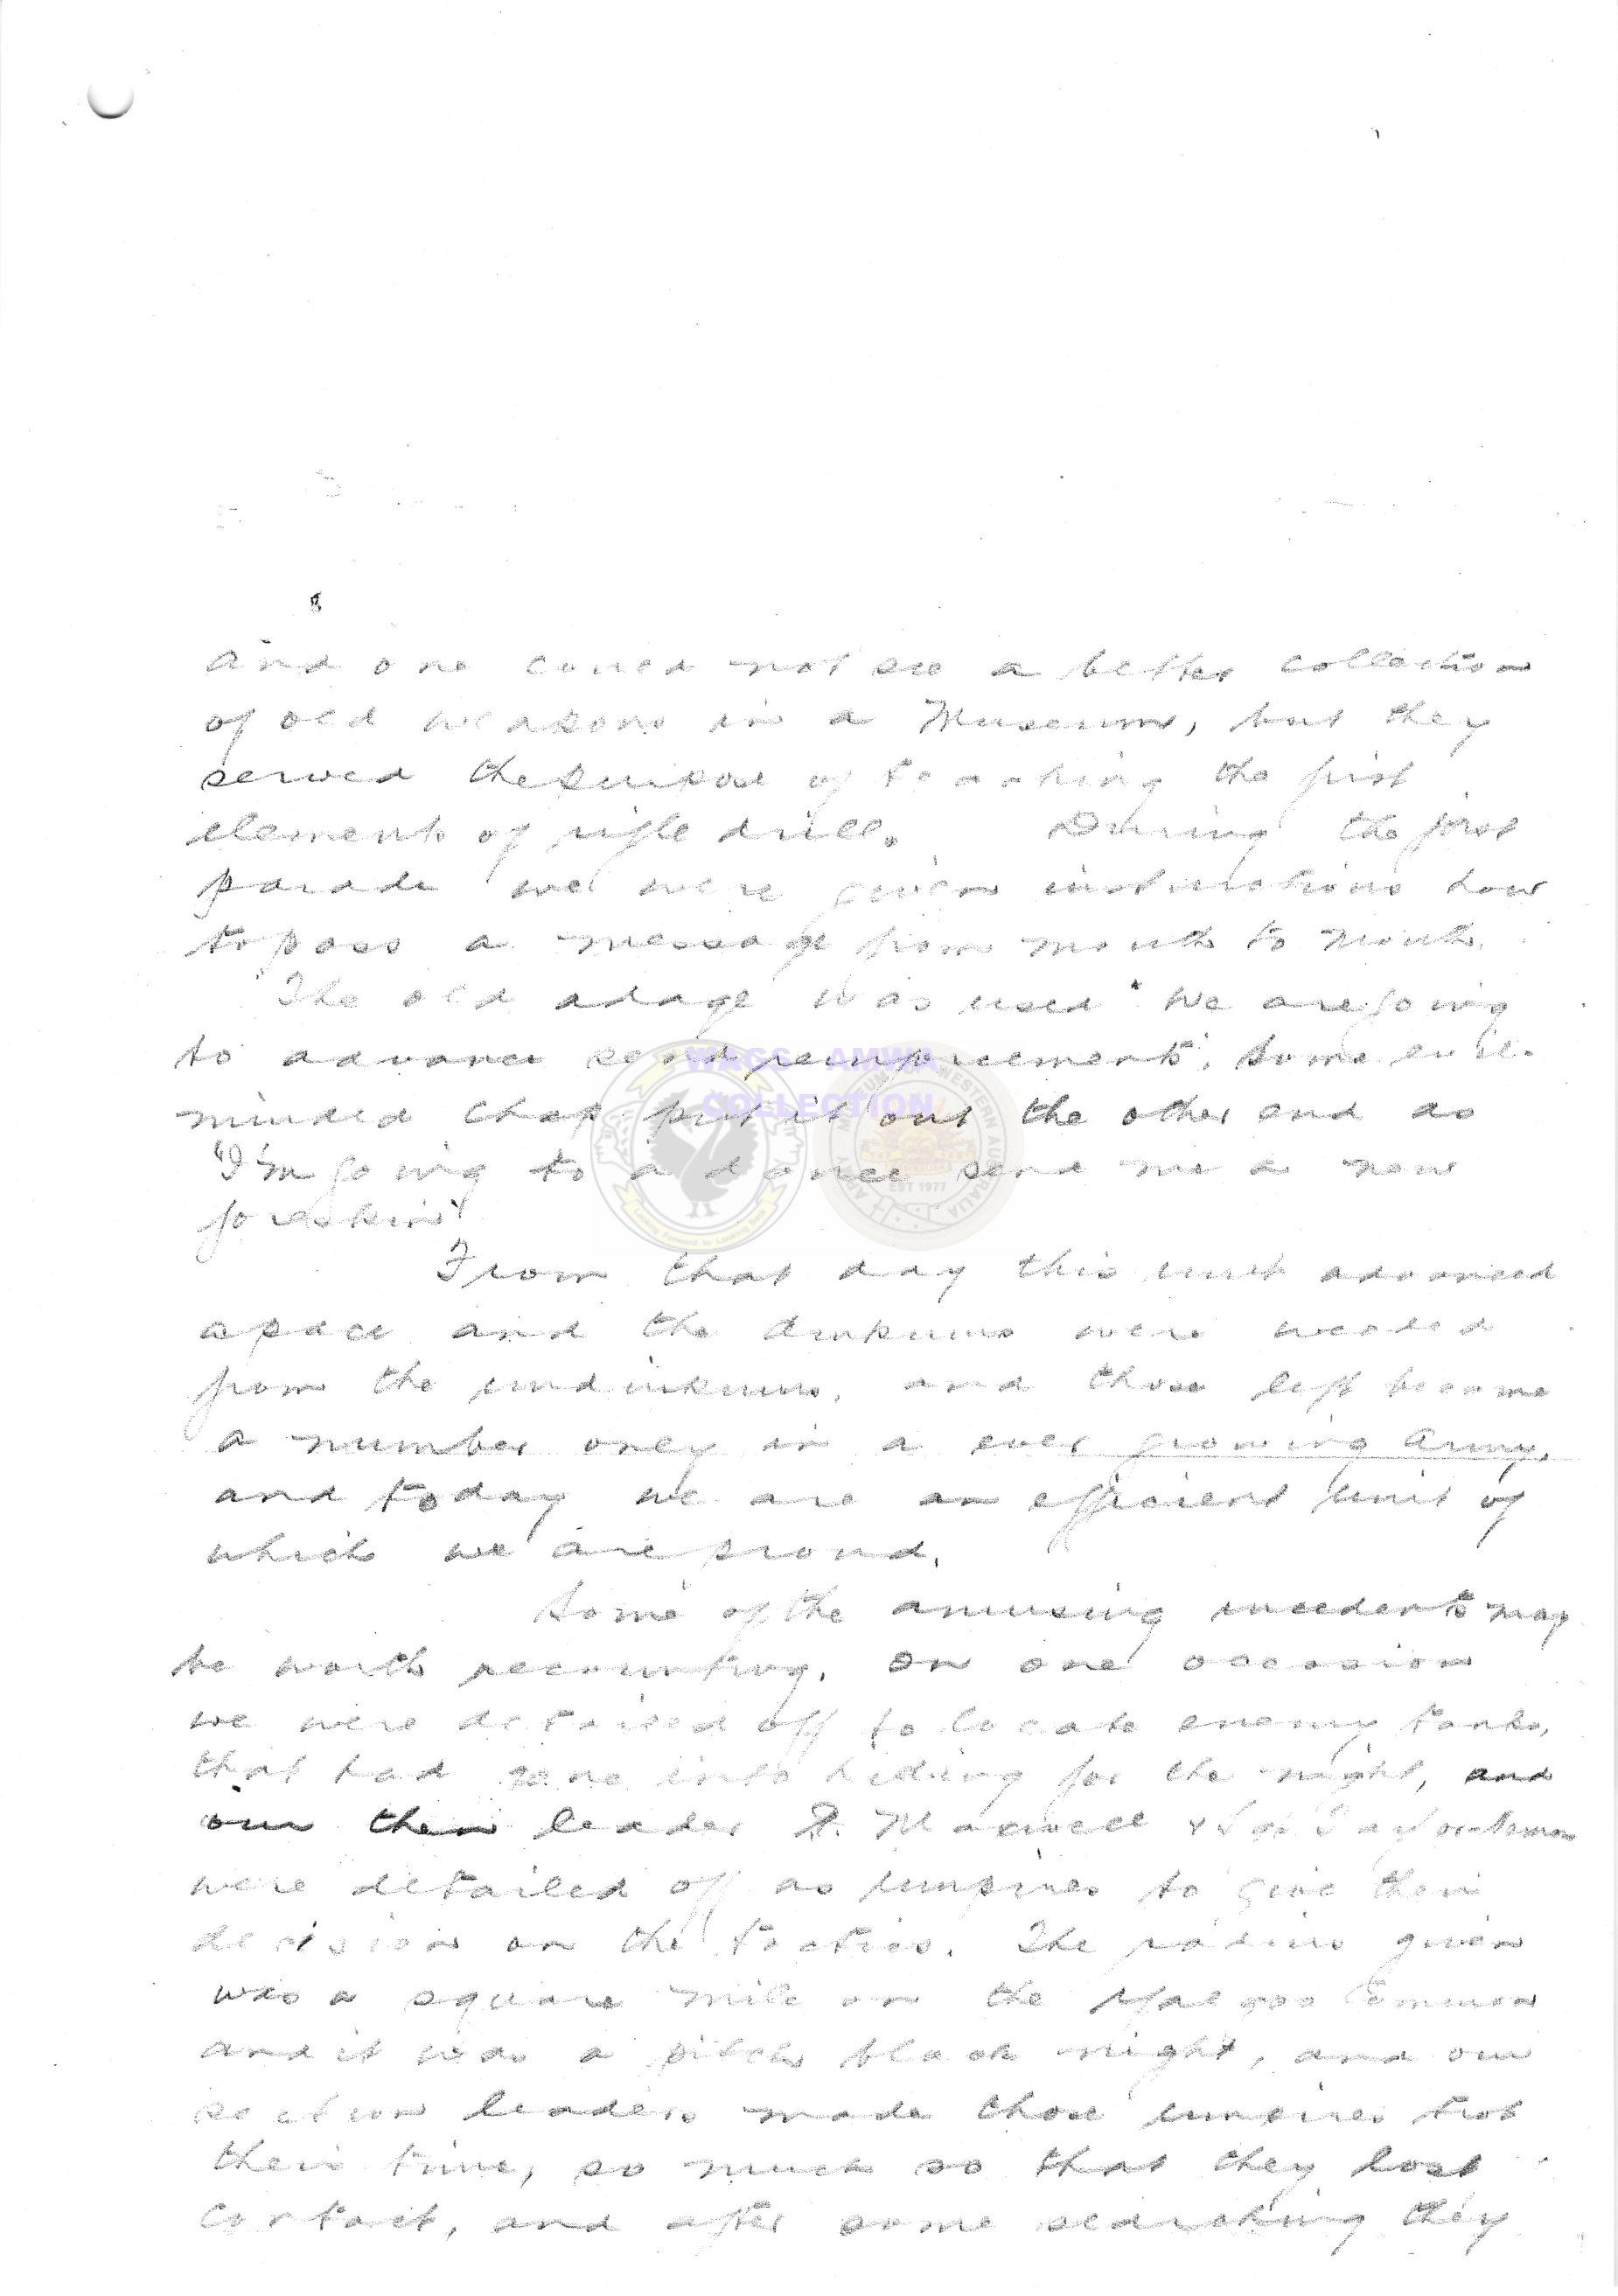 8
And one could not see a better collection
of old weapons in a Museum, but they
served the purpose of teaching the first
elements of rifle drill. During the first
parade we were given instructions how
to pass a message from mouth to mouth.
The old adage was used "We are going
to advance send reinforcements", some evil-
minded chap put it out the other end as
"I'm going to a dance send me a new
foreskin"
From that day this unit advanced
apace and the dinkums were weeded
from the undinkums, and those left became
a number only in a ever growing Army,
and today we are an efficient unit of
which we are proud.
Some of the amusing incidents may
be worth recounting. On one occasion
we were detailed off to locate enemy tanks,
that had gone into hiding for the night, and
our then leader Maxwell &
were detailed off as umpires to give their
decision on the tactics. The radius given
was a square mile on the Common
and it was a pitch black night, and our
section leaders made those umpires trot
their time, so much so that they lost
contact, and after some searching they
WAGS AMWA
COLLECTION
ARMY MUSEUM OF WESTERN AUSTRALIA
EST 1977
Looking Forward to Looking Back